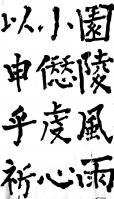 園陵風雨
小虔心
以申乎祈